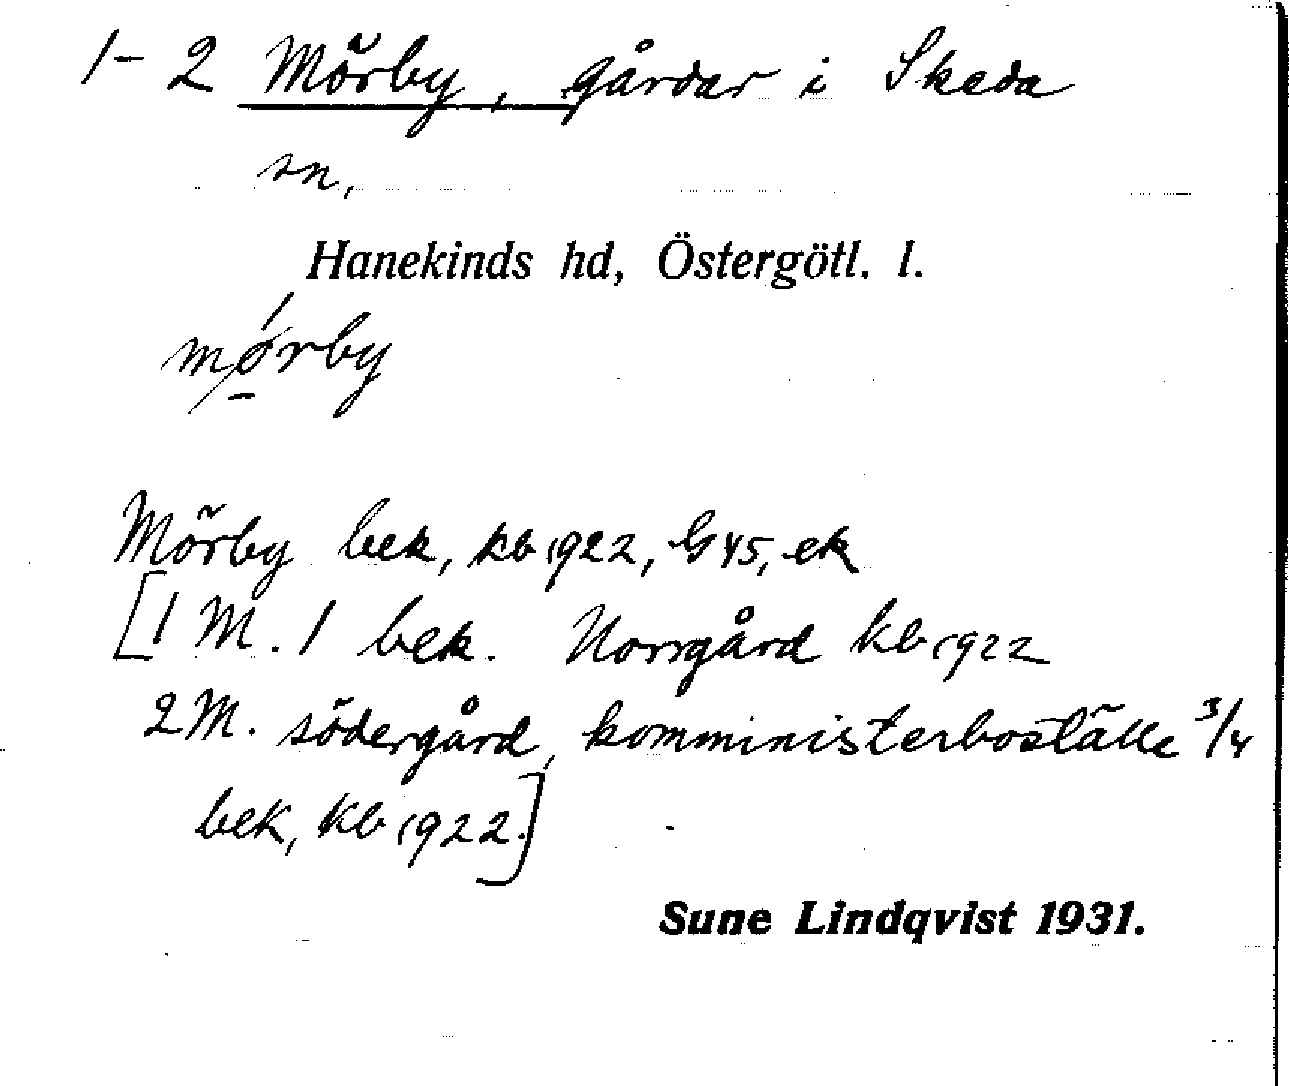 1-2 Mörby, gårdar i Skeda
sn,
Hanekinds hd, Östergötl. l.
mǿrby
Mörby bek, kb 1922, G 45, ek
[1 M. 1 bek. Norrgård kb 1922
2 M. södergård, komministerboställe 3/4
bek, kb 1922.]
Sune Lindqvist 1931.